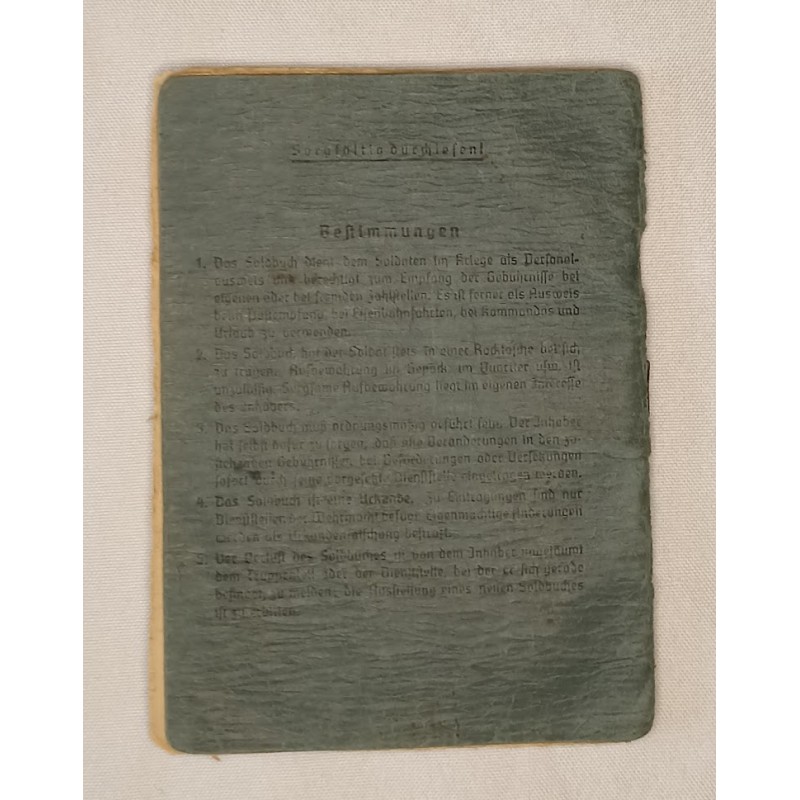 Sorgfältig durchlesen!
Bestimmungen
1. Das Soldbuch dient dem Soldaten im Kriege als Personal-
ausweis und berechtigt zum Empfang der Gebührnisse bei
eigenen oder bei fremden Zahlstellen. Es ist ferner als Ausweis
beim Postempfang, bei Eisenbahnfahrten, bei Kommandos und
Urlaub zu verwenden.
2. Das Soldbuch hat der Soldat stets in einer Rocktasche bei sich
zu tragen. Aufbewahrung im Gepäck, im Quartier usw. ist
unzulässig. Sorgsame Aufbewahrung liegt im eigenen Interesse
des Inhabers.
3. Das Soldbuch muß ordnungsmäßig geführt sein. Der Inhaber
hat selbst dafür zu sorgen, daß alle Veränderungen in den zu-
ständigen Gebührnissen bei Beförderungen oder Versetzungen
sofort durch seine vorgesetzte Dienststelle eingetragen werden.
4. Das Soldbuch ist eine Urkunde. Zu Eintragungen sind nur
Dienststellen der Wehrmacht befugt. Eigenmächtige Änderungen
werden als Urkundenfälschung bestraft.
5. Der Verlust des Soldbuches ist von dem Inhaber ungesäumt
dem Truppenteil oder der Dienststelle, bei der er sich gerade
befindet, zu melden; die Ausstellung eines neuen Soldbuches
ist zu erbitten.